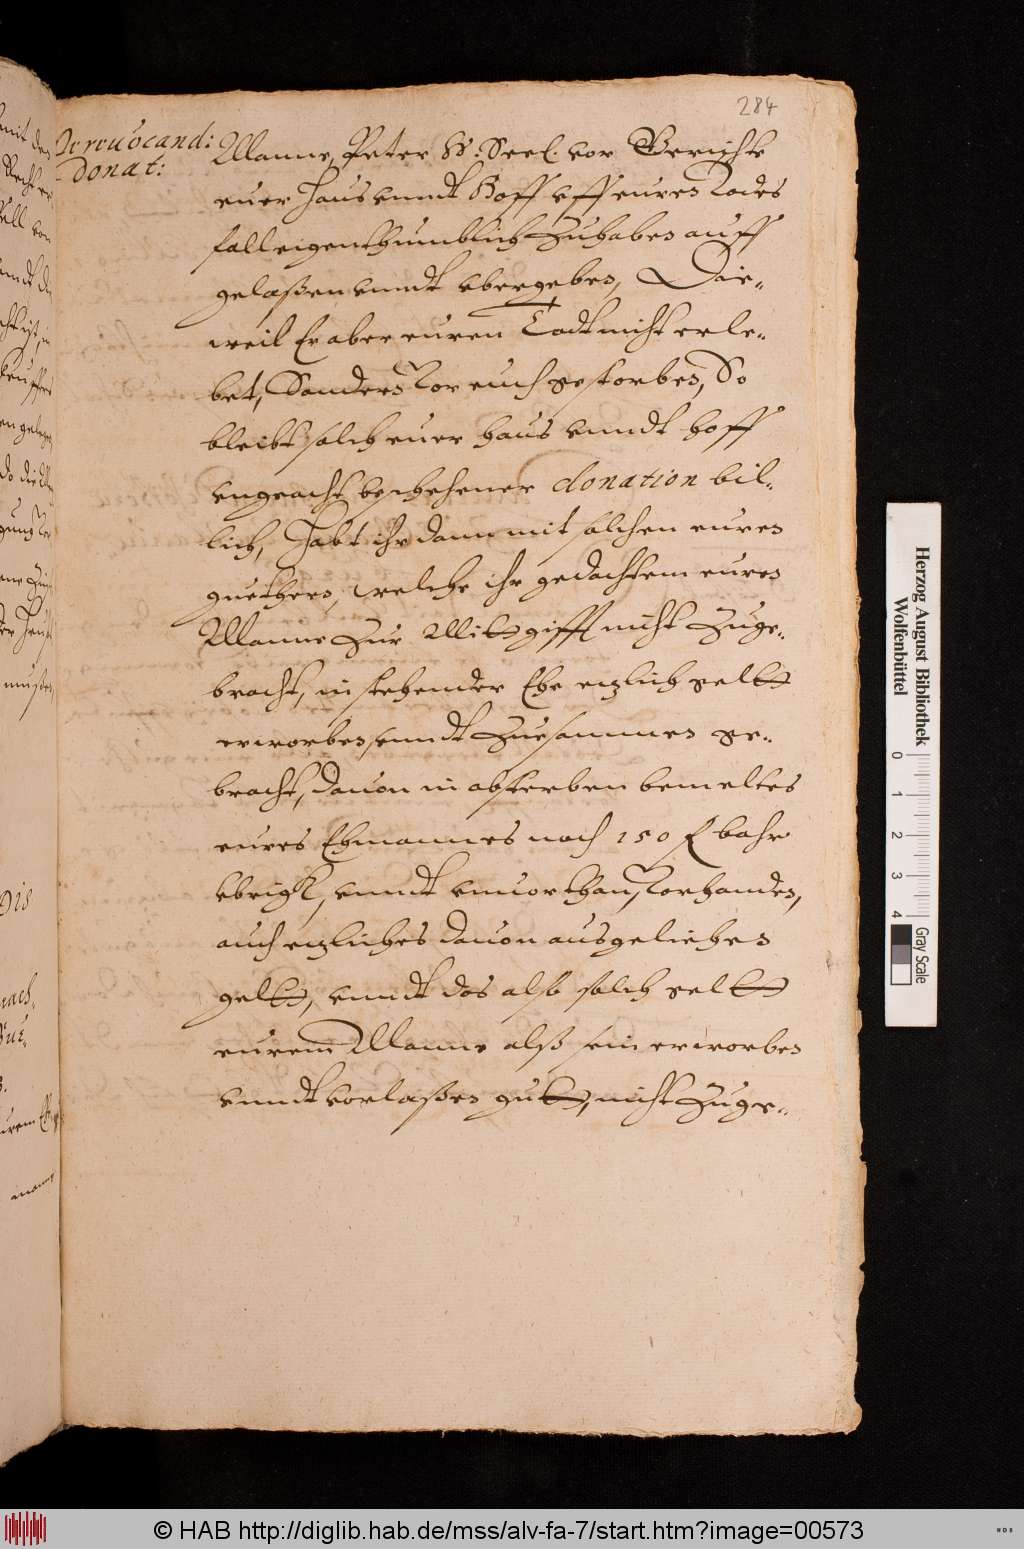 284
De reuocand:
donat:
Manne, Peter W. Seel. vor Gerichte
euer Haus vnndt Hoff vff eures Todes
fall eigenthumblich zu haben auff
gelaßen vnndt vbergeben, Die-
weil Er aber euren Todt nicht erle-
bet, Sondern vor euch gestorben, So
bleibt solch euer haus vnndt hoff
vngeacht beschehener donation bil-
lich, Habt ihr dann mit solchen euren
guethern, welche ihr gedachtem eures
Manne zur Mitgifft nicht zuge-
bracht, in stehender Ehe etzlich gelt
erworben vnndt zuesammen ge-
bracht, dauon in absterben bemeltes
eures Ehmannes noch 150 f bahr
vbrigk, vnndt vnuorthan, vorhanden,
auch etzliches dauon ausgeliehen
gelt, vnndt das also solch gelt
eurem Manne alß sein erworben
vnndt vorlaßen gutt, nicht zuge-
Herzog August Bibliothek
Wolfenbüttel
0 1 2 3 4
Gray Scale
© HAB http://diglib.hab.de/mss/alv-fa-7/start.htm?image=00573